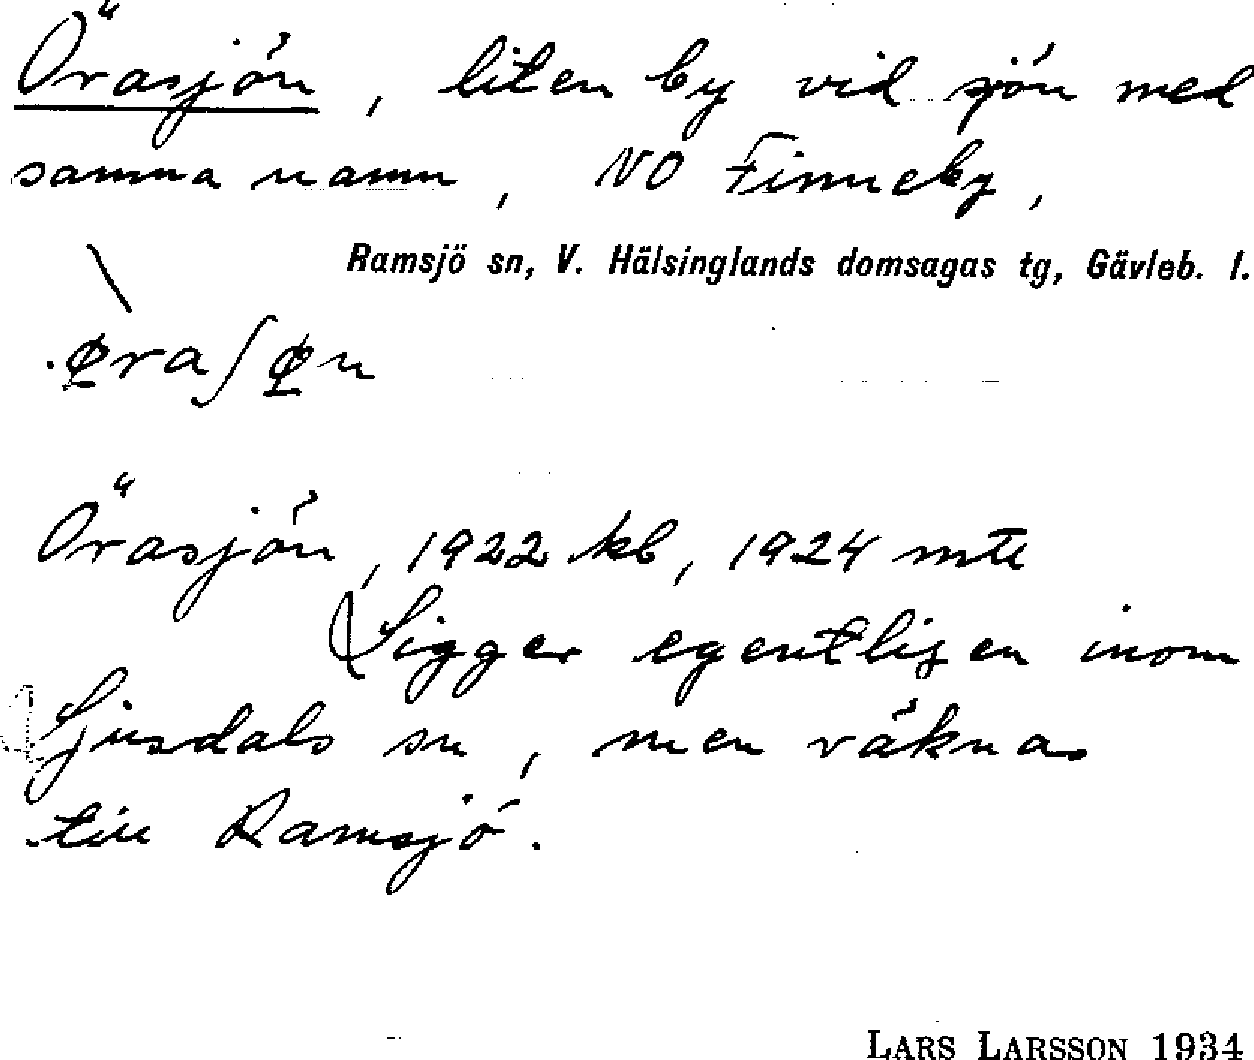 Örasjön, liten by vid sjön med
samma namn, NO Finneby,
Ramsjö sn, V. Hälsinglands domsagas tg, Gävleb. l.
Örasjön, 1922 kb, 1924 mtl
Ligger egentligen inom
Ljusdals sn, men räknas
till Ramsjö.
LARS LARSSON 1934